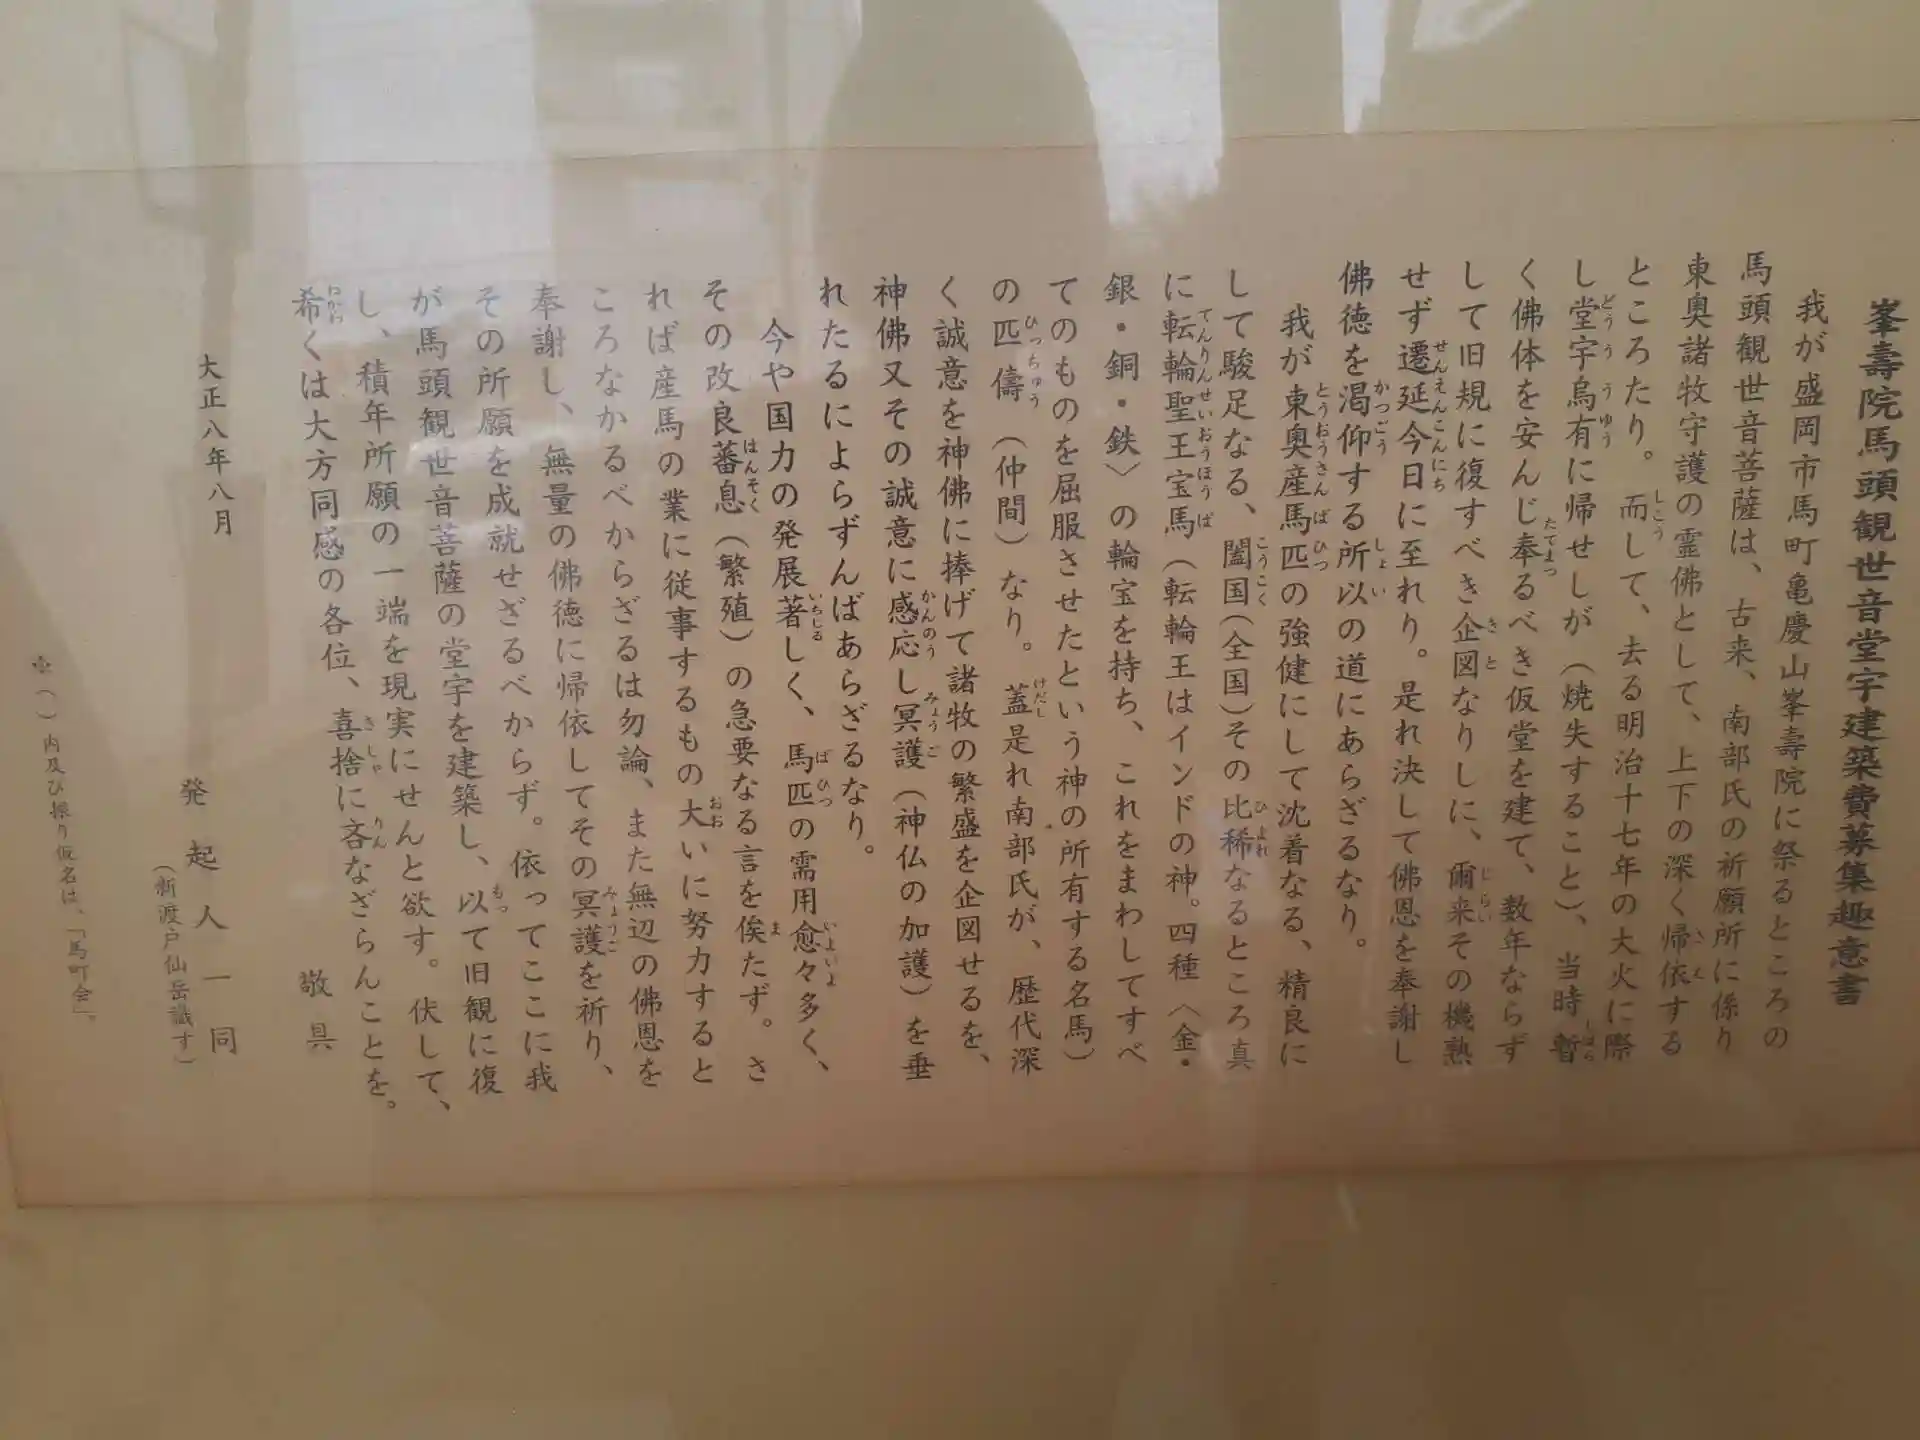 峯壽院馬頭観世音堂宇建築費募集趣意書
我が盛岡市馬町亀慶山峯壽院に祭るところの
馬頭観世音菩薩は、古来、南部氏の祈願所に係り
東奥諸牧守護の霊佛として、上下の深く帰依する
ところたり。而して、去る明治十七年の大火に際
し堂宇烏有に帰せしが（焼失すること）、当時暫
く佛体を安んじ奉るべき仮堂を建て、数年ならず
して旧規に復すべき企図なりしに、爾来その機熟
せず遷延今日に至れり。是れ決して佛恩を奉謝し
佛徳を渇仰する所以の道にあらざるなり。
我が東奥産馬匹の強健にして沈着なる、精良に
して駿足なる、闔国（全国）その比稀なるところ真
に転輪聖王宝馬（転輪王はインドの神。四種〈金・
銀・銅・鉄〉の輪宝を持ち、これをまわしてすべ
てのものを屈服させたという神の所有する名馬）
の匹儔（仲間）なり。蓋是れ南部氏が、歴代深
く誠意を神佛に捧げて諸牧の繁盛を企図せるを、
神佛又その誠意に感応し冥護（神仏の加護）を垂
れたるによらずんばあらざるなり。
今や国力の発展著しく、馬匹の需用愈々多く、
その改良蕃息（繁殖）の急要なる言を俟たず。さ
れば産馬の業に従事するもの大いに努力すると
ころなかるべからざるは勿論、また無辺の佛恩を
奉謝し、無量の佛徳に帰依してその冥護を祈り、
その所願を成就せざるべからず。依ってここに我
が馬頭観世音菩薩の堂宇を建築し、以て旧観に復
し、積年所願の一端を現実にせんと欲す。伏して、
希くは大方同感の各位、喜捨に吝なざらんことを。
敬具
大正八年八月
発起人一同
（新渡戸仙岳識す）
※（ ）内及び振り仮名は、「馬町会」。